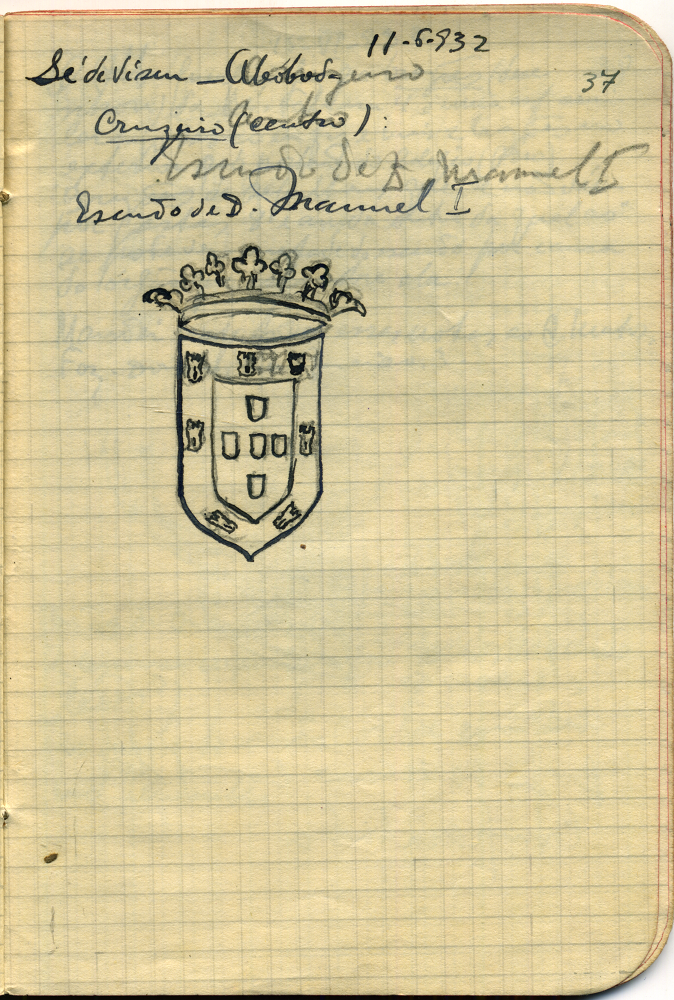 11-6-932
37
Sé de Viseu — Abobada
Cruzeiro (centro):
Escudo de D. Manuel I
Escudo de D. Manuel I